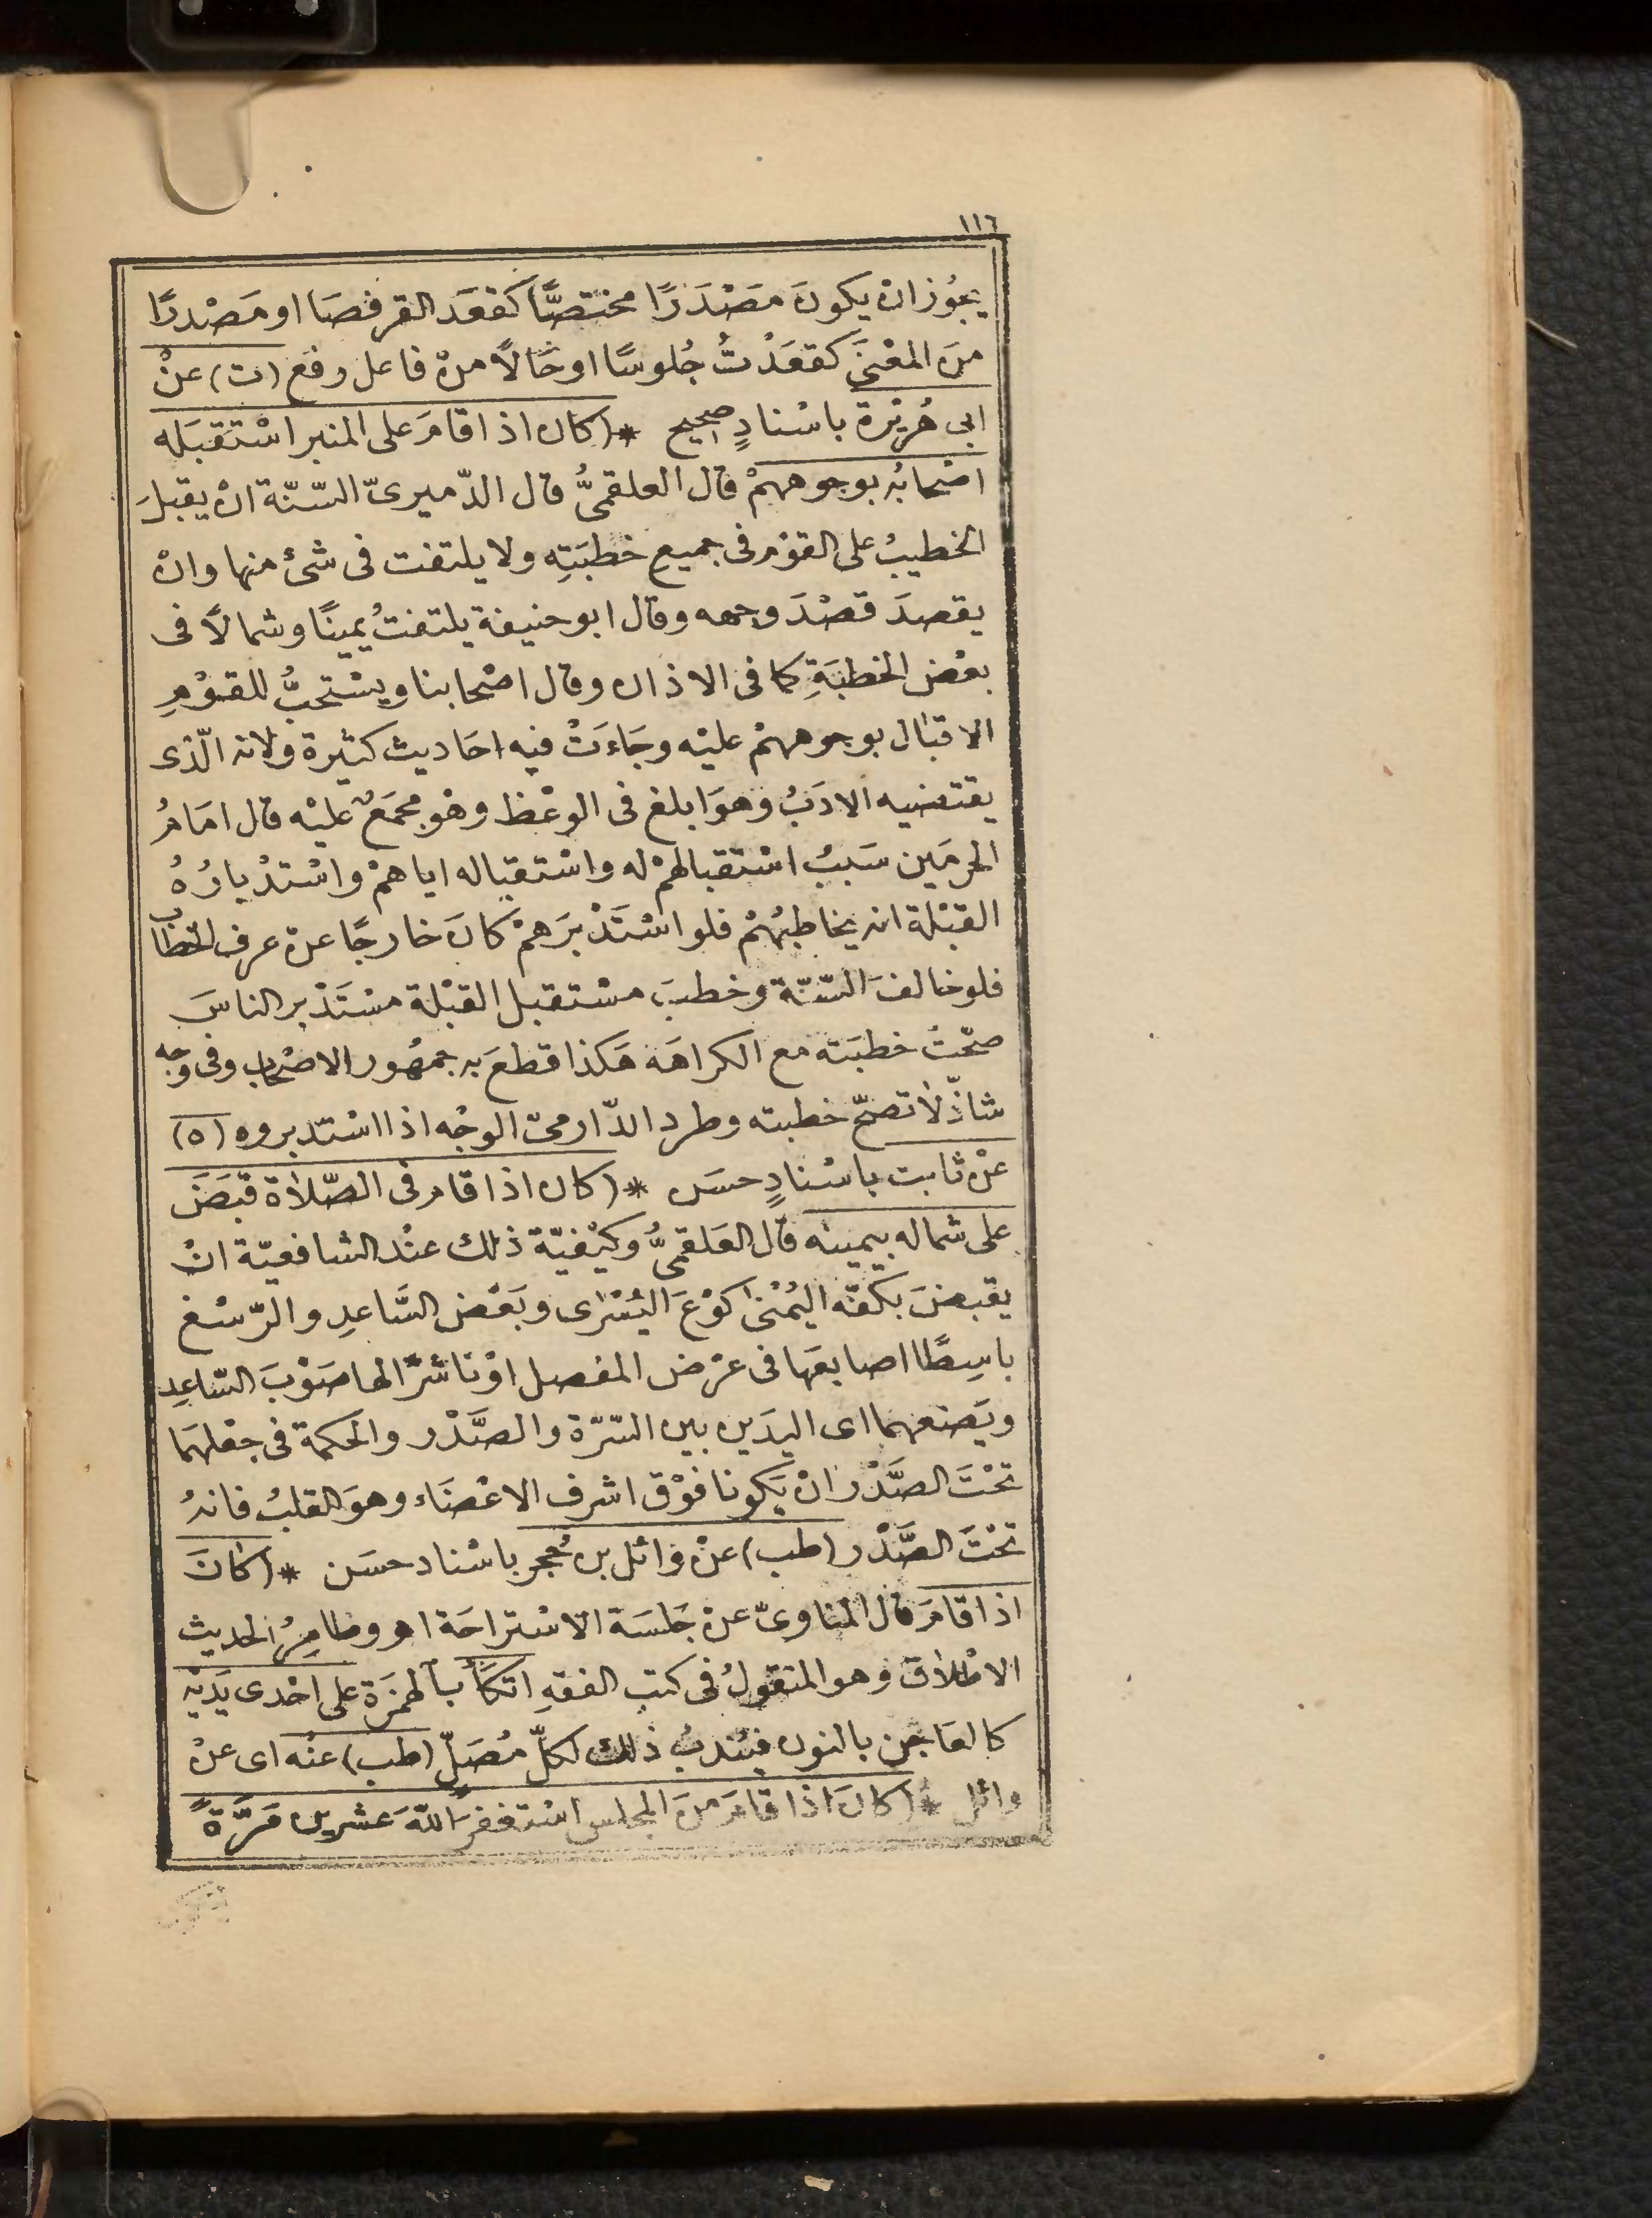 ١١٦
يجُوز انْ يكونَ مصْدَرًا مختصًّا كَقعَد القرفصَا او مَصْدرًا
منَ المعْنىَ كقعَدْتُ جُلوسًا اوحَالاً منْ فاعل رفع (ت) عنْ
ابى هُريْرة باسْنادٍ صحيح * (كان اذا قامَ على المنبر اسْتَقبَله
اصْحابُه بوجوههمْ قال العلقمىُّ قال الدّميرىّ السّنّة انْ يقبلَ
الخطيبُ على القوْم فى جميع خطبَتِه ولا يلتفت فى شئ منها وانْ
يقصدَ قصْدَ وجهه وقال ابو حنيفة يلتفتُ يمينًا وشمالاً فى
بعْض الخطبَةِ كما فى الاذان وقال اصْحابنا ويسْتحبُّ للقوْمِ
الاقبال بوجوههمْ عليْه وجَاءَتْ فيه احَاديث كثيرة ولانه الّذى
يقتضيه الادَبُ وهوَ ابلغ فى الوعْظ وهْو مجمَعٌ عليْه قال امَامُ
الحرمَين سَببُ اسْتقبالهمْ له واسْتقباله اياهمْ واسْتدْبارُهُ
القبْلة انه يخاطبُهُمْ فلو اسْتَدْبرَهمْ كانَ خارجًا عنْ عرف الخطاب
فلو خالفَ السّنّة وخطبَ مسْتقبل القبْلة مسْتَدْبر الناسَ
صحّتْ خطبَته مع الكراهَة هَكذا قطعَ به جمهُور الاصْحاب وفى وجه
شاذّ لاتصحّ خطبته وطرد الدّارمىّ الوجْه اذا اسْتدبروه (ه)
عنْ ثابت باسْنادٍ حسَن * (كان اذا قام فى الصّلاة قبَضَ
على شماله بيمينه قال العَلقمىُّ وكيْفيّة ذلك عنْد الشافعيّة انْ
يقبضَ بكفّه اليُمْنىٰ كوْعَ اليُسْرٰى وبَعْض السَّاعدِ والرّسْغ
باسِطًا اصابعَها فى عرْض المفصل اوْناشرًا لها صَوْبَ السّاعِد
ويَضعهما اى اليدَين بين السّرّة والصَّدْر والحكمة فى جعْلهَما
تحْتَ الصَّدْر انْ يَكونا فوْق اشرف الاعْضَاء وهوَ القلبُ فانهُ
تحْتَ الصَّدْر (طب) عنْ وائل بن حُجر باسْناد حسَن * (كانَ
اذا قامَ قال المناوىّ عنْ جَلسَة الاسْتراحَة اه وظاهرُ الحديث
الاطْلاق وهو المنقولُ فى كتب الفقهِ اتكَأ بالهمزَة على احْدى يَديْه
كالعَاجن بالنون فيُندبُ ذٰلك لكلّ مُصَلّ (طب) عنْه اى عنْ
وائل * (كانَ اذا قامَ منَ المجلس اسْتغفرَ اللّهَ عشرين مَرَّةً